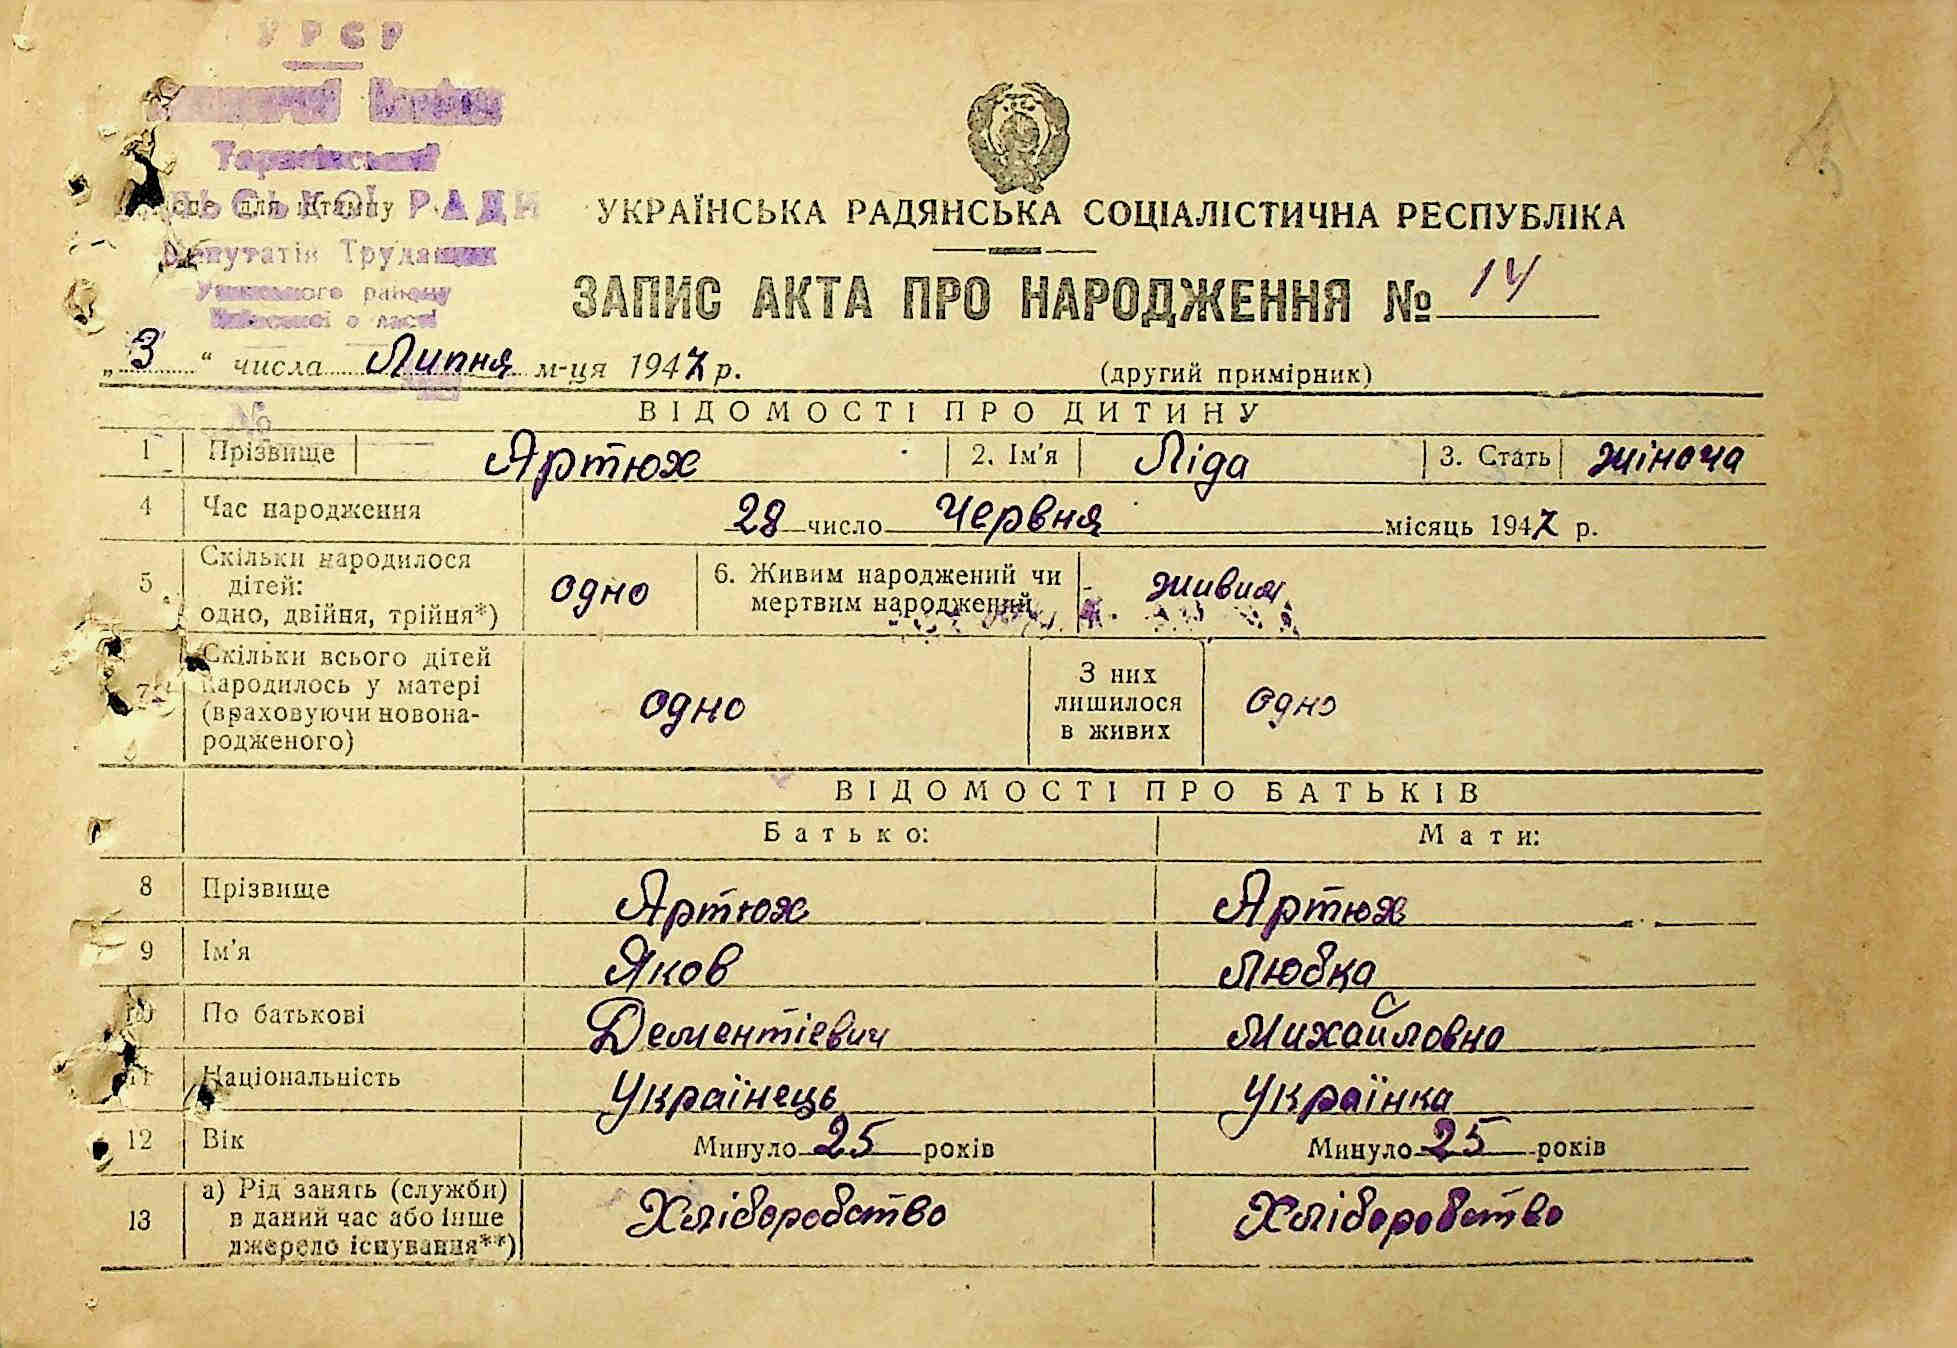 УРСР
РАДИ
Депутатів Трудящих
району
Місце для штампу
УКРАЇНСЬКА РАДЯНСЬКА СОЦІАЛІСТИЧНА РЕСПУБЛІКА
ЗАПИС АКТА ПРО НАРОДЖЕННЯ № 14
„3“ числа Липня м-ця 1947 р.
(другий примірник)
№
ВІДОМОСТІ ПРО ДИТИНУ
1 Прізвище Артюх 2. Ім'я Ліда 3. Стать жіноча
4 Час народження 28 число Червня місяць 1947 р.
5 Скільки народилося дітей: одно, двійня, трійня*) одно 6. Живим народжений чи мертвим народжений живим
7 Скільки всього дітей народилось у матері (враховуючи новона-родженого) одно З них лишилося в живих одно
ВІДОМОСТІ ПРО БАТЬКІВ
Батько: Мати:
8 Прізвище Артюх Артюх
9 Ім'я Яков Любка
10 По батькові Дементієвич Михайловна
11 Національність Українець Українка
12 Вік Минуло 25 років Минуло 25 років
13 а) Рід занять (служби) в даний час або інше джерело існування**) Хліборобство Хліборобство